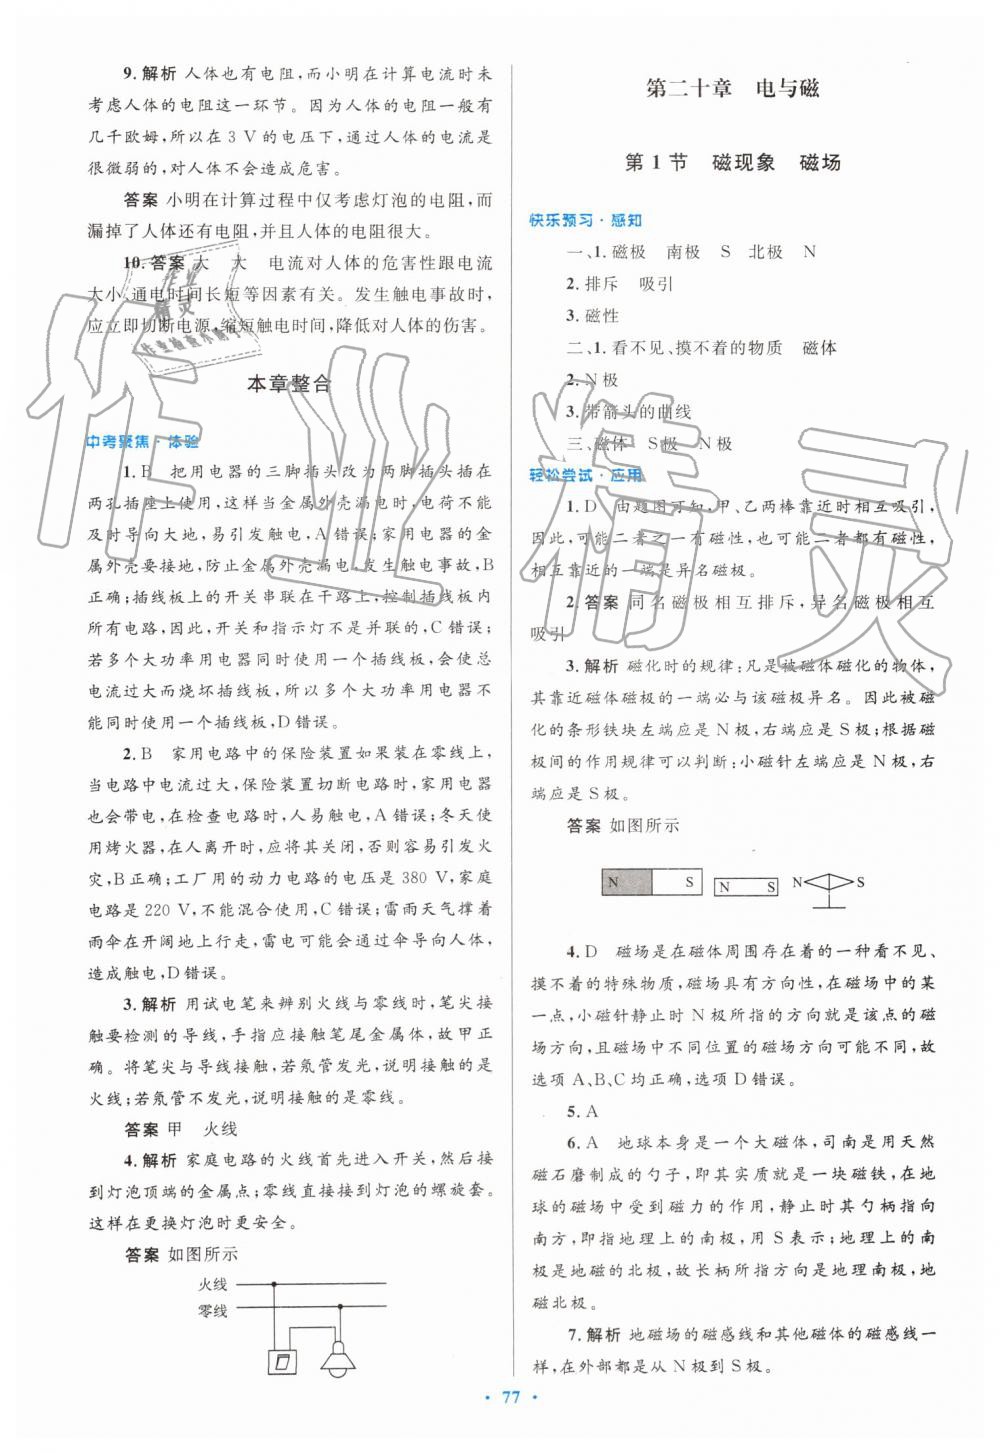 9. 解析 人体也有电阻,而小明在计算电流时未
考虑人体的电阻这一环节。因为人体的电阻一般有
几千欧姆,所以在 3 V 的电压下,通过人体的电流是
很微弱的,对人体不会造成危害。
答案 小明在计算过程中仅考虑灯泡的电阻,而
漏掉了人体还有电阻,并且人体的电阻很大。
10. 答案 大 大 电流对人体的危害性跟电流
大小、通电时间长短等因素有关。发生触电事故时,
应立即切断电源,缩短触电时间,降低对人体的伤害。
本章整合
中考聚焦·体验
1. B 把用电器的三脚插头改为两脚插头插在
两孔插座上使用,这样当金属外壳漏电时,电荷不能
及时导向大地,易引发触电,A 错误;家用电器的金
属外壳要接地,防止金属外壳漏电,发生触电事故,B
正确;插线板上的开关串联在干路上,控制插线板内
所有电路,因此,开关和指示灯不是并联的,C 错误;
若多个大功率用电器同时使用一个插线板,会使总
电流过大而烧坏插线板,所以多个大功率用电器不
能同时使用一个插线板,D 错误。
2. B 家用电路中的保险装置如果装在零线上,
当电路中电流过大,保险装置切断电路时,家用电器
也会带电,在检查电路时,人易触电,A 错误;冬天使
用烤火器,在人离开时,应将其关闭,否则容易引发火
灾,B 正确;工厂用的动力电路的电压是 380 V,家庭
电路是 220 V,不能混合使用,C 错误;雷雨天气撑着
雨伞在开阔地上行走,雷电可能会通过伞导向人体,
造成触电,D 错误。
3. 解析 用试电笔来辨别火线与零线时,笔尖接
触要检测的导线,手指应接触笔尾金属体,故甲正
确。将笔尖与导线接触,若氖管发光,说明接触的是
火线;若氖管不发光,说明接触的是零线。
答案 甲 火线
4. 解析 家庭电路的火线首先进入开关,然后接
到灯泡顶端的金属点;零线直接接到灯泡的螺旋套。
这样在更换灯泡时更安全。
答案 如图所示
火线
零线
第二十章 电与磁
第 1 节 磁现象 磁场
快乐预习·感知
一、1. 磁极 南极 S 北极 N
2. 排斥 吸引
3. 磁性
二、1. 看不见、摸不着的物质 磁体
2. N 极
3. 带箭头的曲线
三、磁体 S 极 N 极
轻松尝试·应用
1. D 由题图可知,甲、乙两棒靠近时相互吸引,
因此,可能二者之一有磁性,也可能二者都有磁性,
相互靠近的一端是异名磁极。
2. 答案 同名磁极相互排斥,异名磁极相互
吸引
3. 解析 磁化时的规律:凡是被磁体磁化的物体,
其靠近磁体磁极的一端必与该磁极异名。因此被磁
化的条形铁块左端应是 N 极,右端应是 S 极;根据磁
极间的作用规律可以判断:小磁针左端应是 N 极,右
端应是 S 极。
答案 如图所示
N S N S N S
4. D 磁场是在磁体周围存在着的一种看不见、
摸不着的特殊物质,磁场具有方向性,在磁场中的某
一点,小磁针静止时 N 极所指的方向就是该点的磁
场方向,且磁场中不同位置的磁场方向可能不同,故
选项 A、B、C 均正确,选项 D 错误。
5. A
6. A 地球本身是一个大磁体,司南是用天然
磁石磨制成的勺子,即其实质就是一块磁铁,在地
球的磁场中受到磁力的作用,静止时其勺柄指向
南方,即指地理上的南极,用 S 表示;地理上的南
极是地磁的北极,故长柄所指方向是地理南极,地
磁北极。
7. 解析 地磁场的磁感线和其他磁体的磁感线一
样,在外部都是从 N 极到 S 极。
· 77 ·
作业精灵
作业
精灵
作业检查小助手